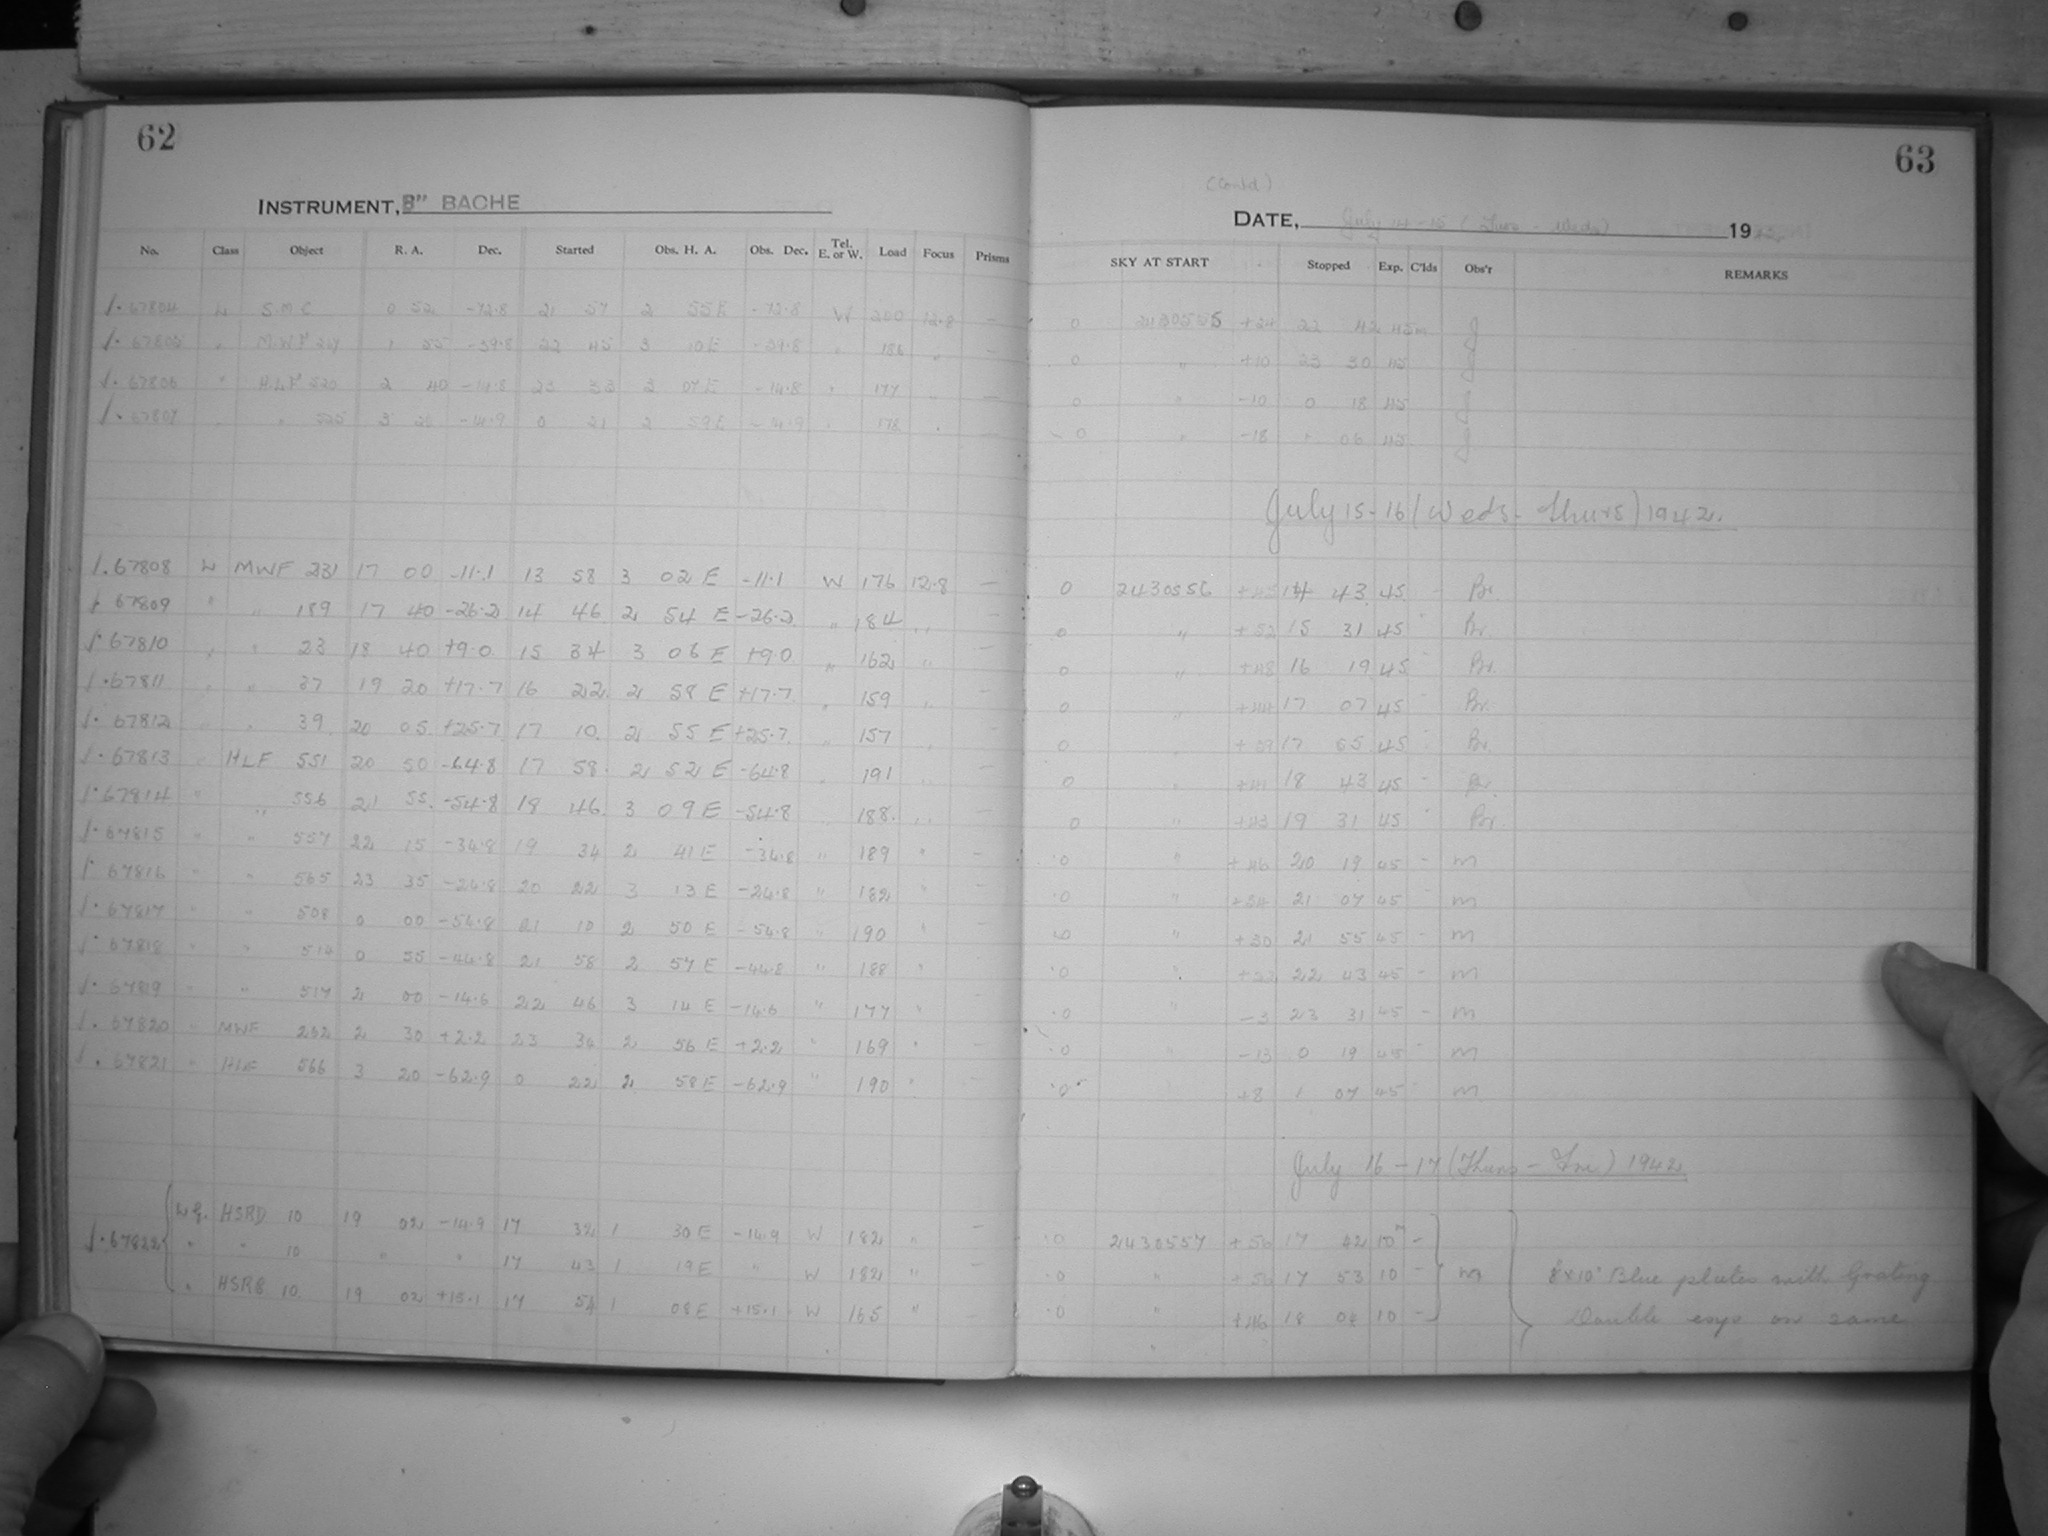 62
INSTRUMENT, 8" BACHE
No. Class Object R. A. Dec. Started Obs. H. A. Obs. Dec. Tel. E. or W. Load Focus Prisms
67804 S.M.C 0 52 -72.8 21 57 2 55 E -72.8 W 200 12.8 —
67805 " 1 55 22 45 3 10 E " 186 " —
67806 " 2 40 -14.8 23 33 3 07 E -14.8 " 177 " —
67807 " 3 -14.9 0 21 2 59 E -14.9 " 178 " —
67808 MWF 231 17 00 -11.1 13 58 3 02 E -11.1 W 176 12.8 —
67809 " " 189 17 40 -26.2 14 46 2 54 E -26.2 " 184 " —
67810 " " 23 18 40 +9.0 15 34 3 06 E +9.0 " 162 " —
67811 " " 37 19 20 +17.7 16 22 2 58 E +17.7 " 159 " —
67812 " " 39 20 05 +25.7 17 10 2 55 E +25.7 " 157 " —
67813 " HLF 551 20 50 -64.8 17 58 2 52 E -64.8 " 191 " —
67814 " " 556 21 55 -54.8 18 46 3 09 E -54.8 " 188 " —
67815 " " 557 22 15 -34.8 19 34 2 41 E -34.8 " 189 " —
67816 " " 565 23 35 -24.8 20 22 3 13 E -24.8 " 182 " —
67817 " " 508 0 00 -54.8 21 10 2 50 E -54.8 " 190 " —
67818 " " 514 0 55 -44.8 21 58 2 57 E -44.8 " 188 " —
67819 " " 517 2 00 -14.6 22 46 3 14 E -14.6 " 177 " —
67820 " MWF 2 30 +2.2 23 34 2 56 E +2.2 " 169 " —
67821 " HLF 566 3 20 -62.9 0 22 2 58 E -62.9 " 190 " —
HSRD 10 19 02 -14.9 17 32 1 30 E -14.9 W 182 " —
67822 " " 10 " " 17 43 1 19 E " W 182 " —
" HSR8 10 19 02 +15.1 17 54 1 08 E +15.1 W 165 " —
63
(Contd)
DATE, July 14-15 (Tues - Weds) 1942
SKY AT START Stopped Exp. C'lds Obs'r REMARKS
0 +24 22 42 45m J
0 " +10 23 30 45 J
0 " -10 0 18 45 J
0 " -18 1 06 45 J
July 15-16 (Weds - Thurs) 1942.
0 2430556 14 43 45 - Br.
0 " +52 15 31 45 - Br.
0 " +48 16 19 45 - Br.
0 " +44 17 07 45 - Br.
0 " +39 17 55 45 - Br.
0 " +41 18 43 45 - Br.
0 " +43 19 31 45 - Br.
0 " +46 20 19 45 - m
0 " +34 21 07 45 - m
0 " +30 21 55 45 - m
0 " 22 43 45 - m
0 " -3 23 31 45 - m
0 " -13 0 19 45 - m
0 " +8 1 07 45 - m
July 16-17 (Thurs - Fri) 1942
0 2430557 +50 17 42 10m -
0 " 17 53 10 - m 8x10" Blue plates with Grating
0 " +46 18 04 10 - Double exps on same